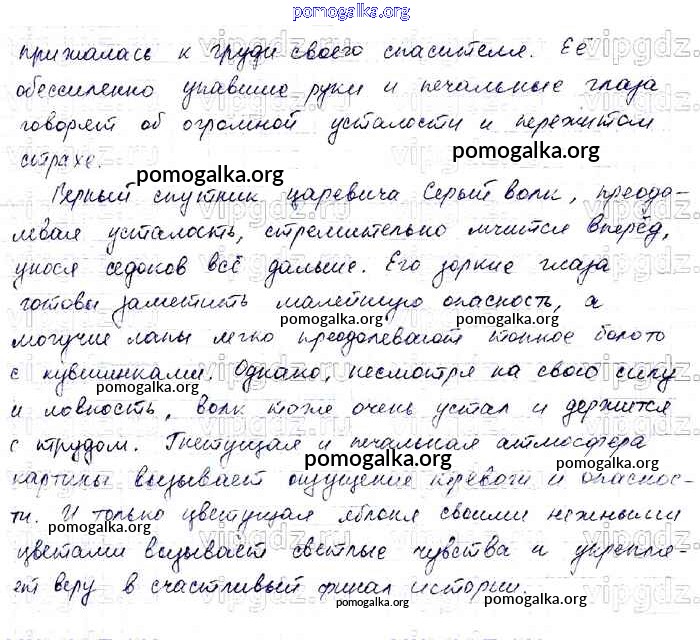 pomogalka.org
прижалась к груди своего спасителя. Её
обессиленно упавшие руки и печальные глаза
говорят об огромной усталости и пережитом
страхе.
pomogalka.org
pomogalka.org
Верный спутник царевича Серый волк, преодо-
левая усталость, стремительно мчится вперёд,
унося седоков всё дальше. Его зоркие глаза
готовы заметить малейшую опасность, а
pomogalka.org
pomogalka.org
могучие лапы легко преодолевают топкое болото
с кувшинками. Однако, несмотря на свою силу
pomogalka.org
pomogalka.org
и ловкость, волк тоже очень устал и держится
с трудом. Гнетущая и печальная атмосфера
pomogalka.org
картины вызывает ощущение тревоги и опаснос-
ти. И только цветущая яблоня своими нежными
pomogalka.org
pomogalka.org
цветами вызывает светлые чувства и укрепля-
ет веру в счастливый финал истории.
pomogalka.org
pomogalka.org